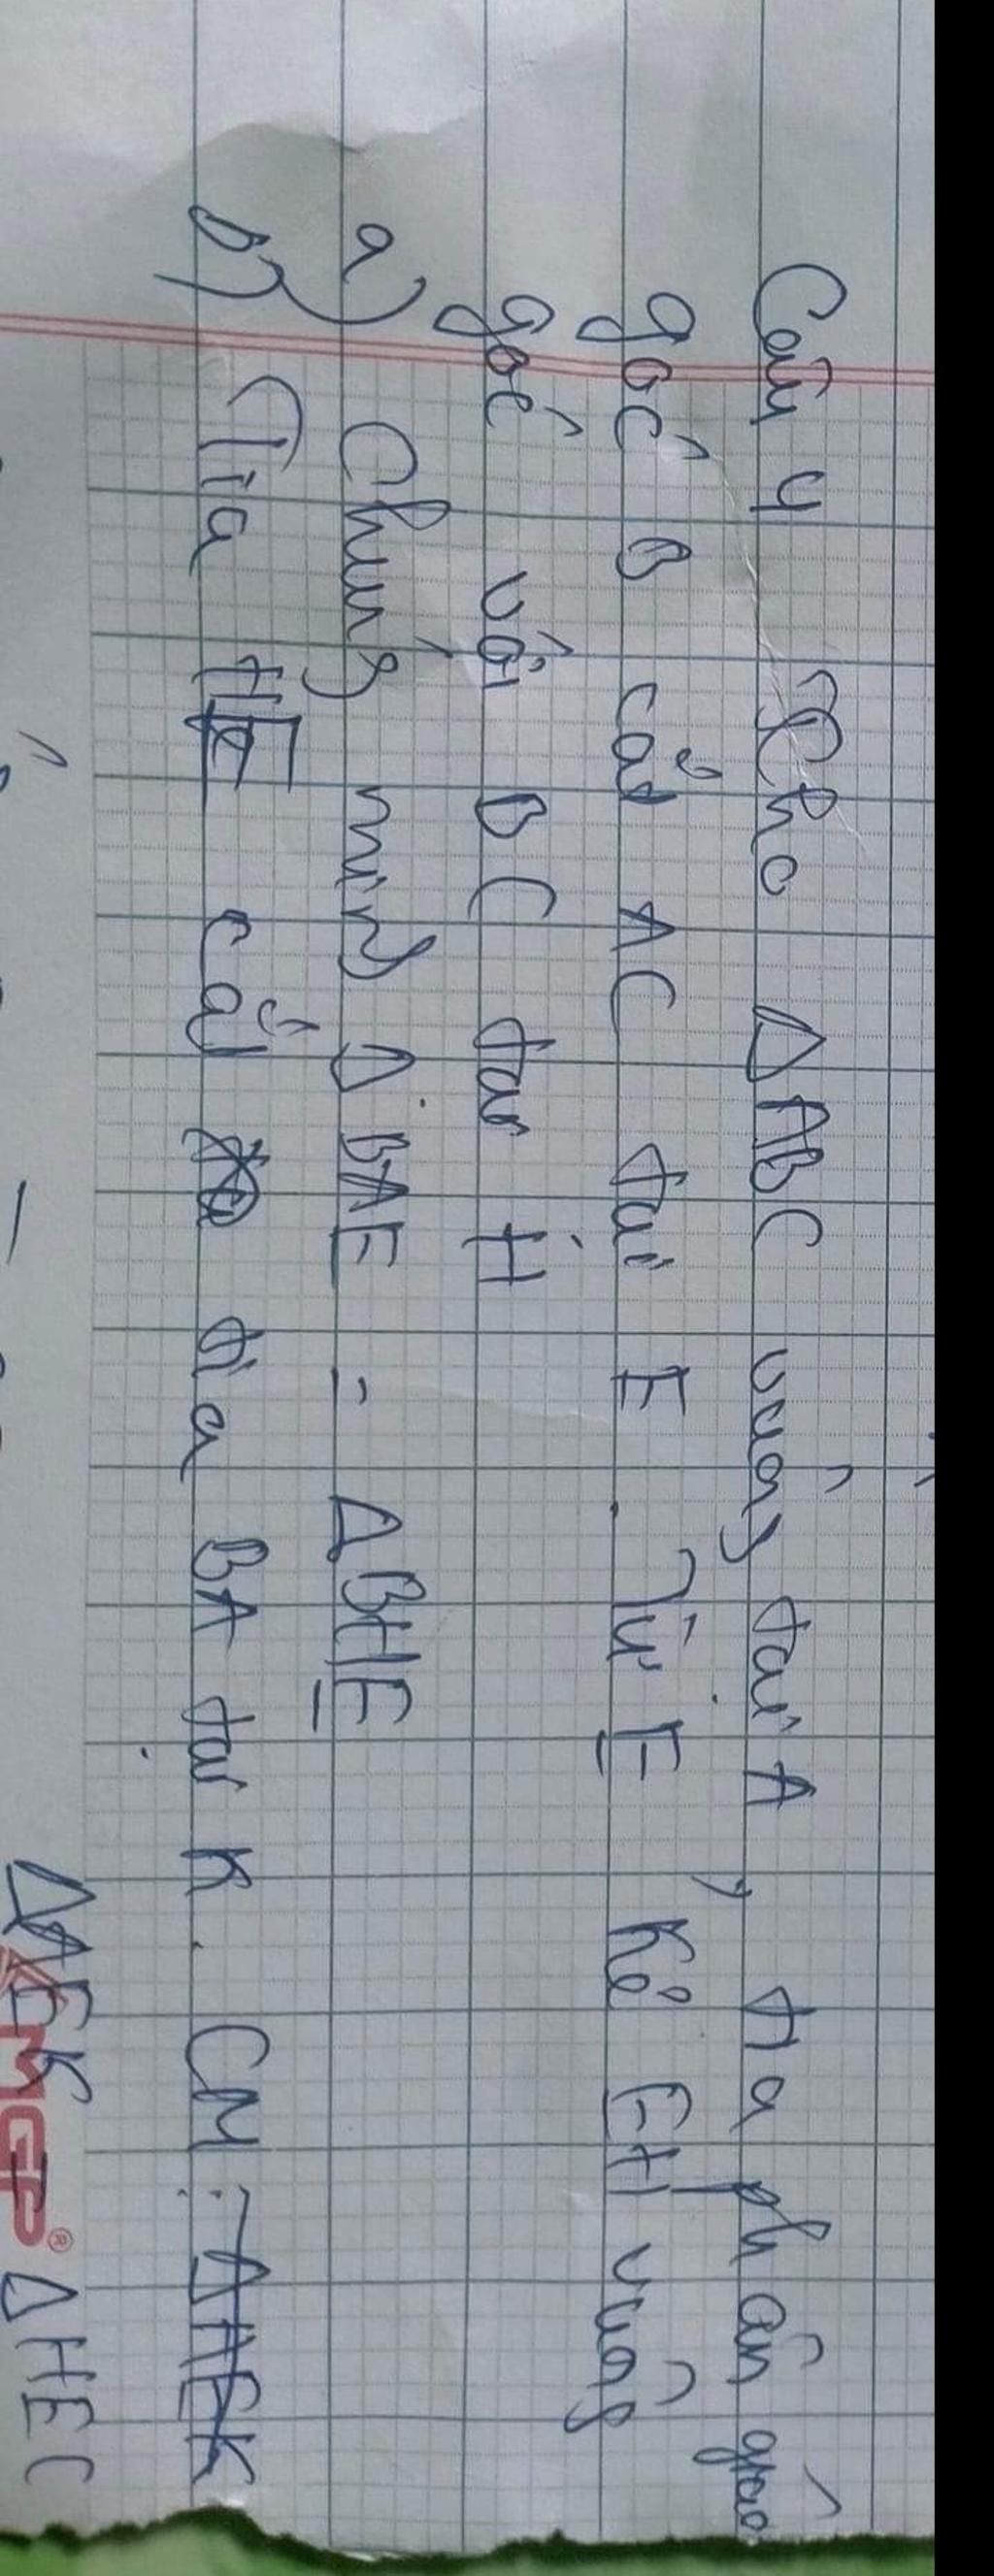 Câu 4 Cho ΔABC vuông tại A, tia phân giác
góc B cắt AC tại E. Từ E kẻ EH vuông
góc với BC tại H
a) Chứng minh Δ BAE = ΔBHE
b) Tia HE cắt tia BA tại K. CM: ΔAEK
ΔAEK ΔHEC
MGP®